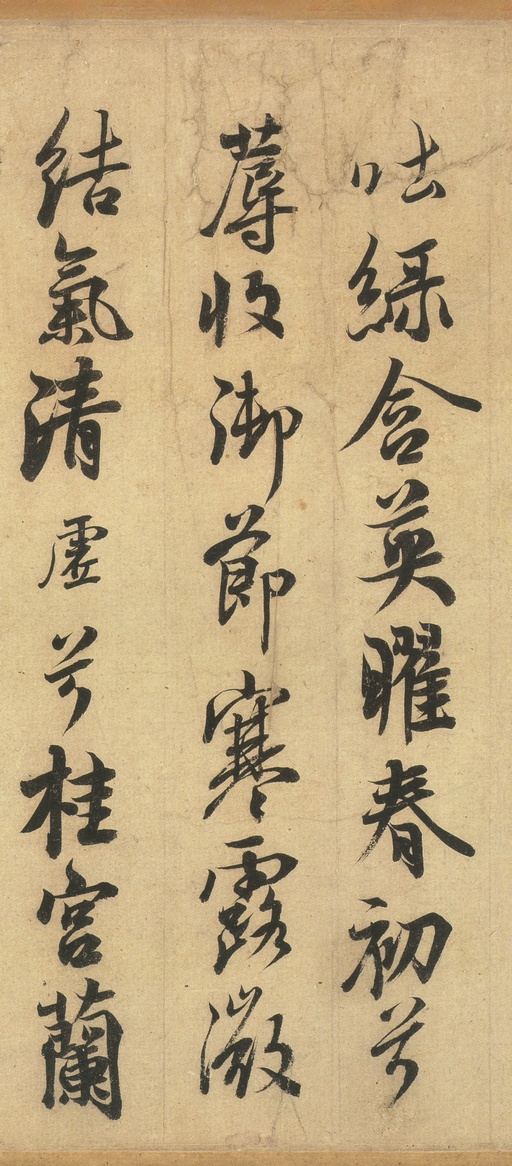 吐緑含英曜春初兮
蓐收御節寒露微
結氣清虚兮桂宮蘭